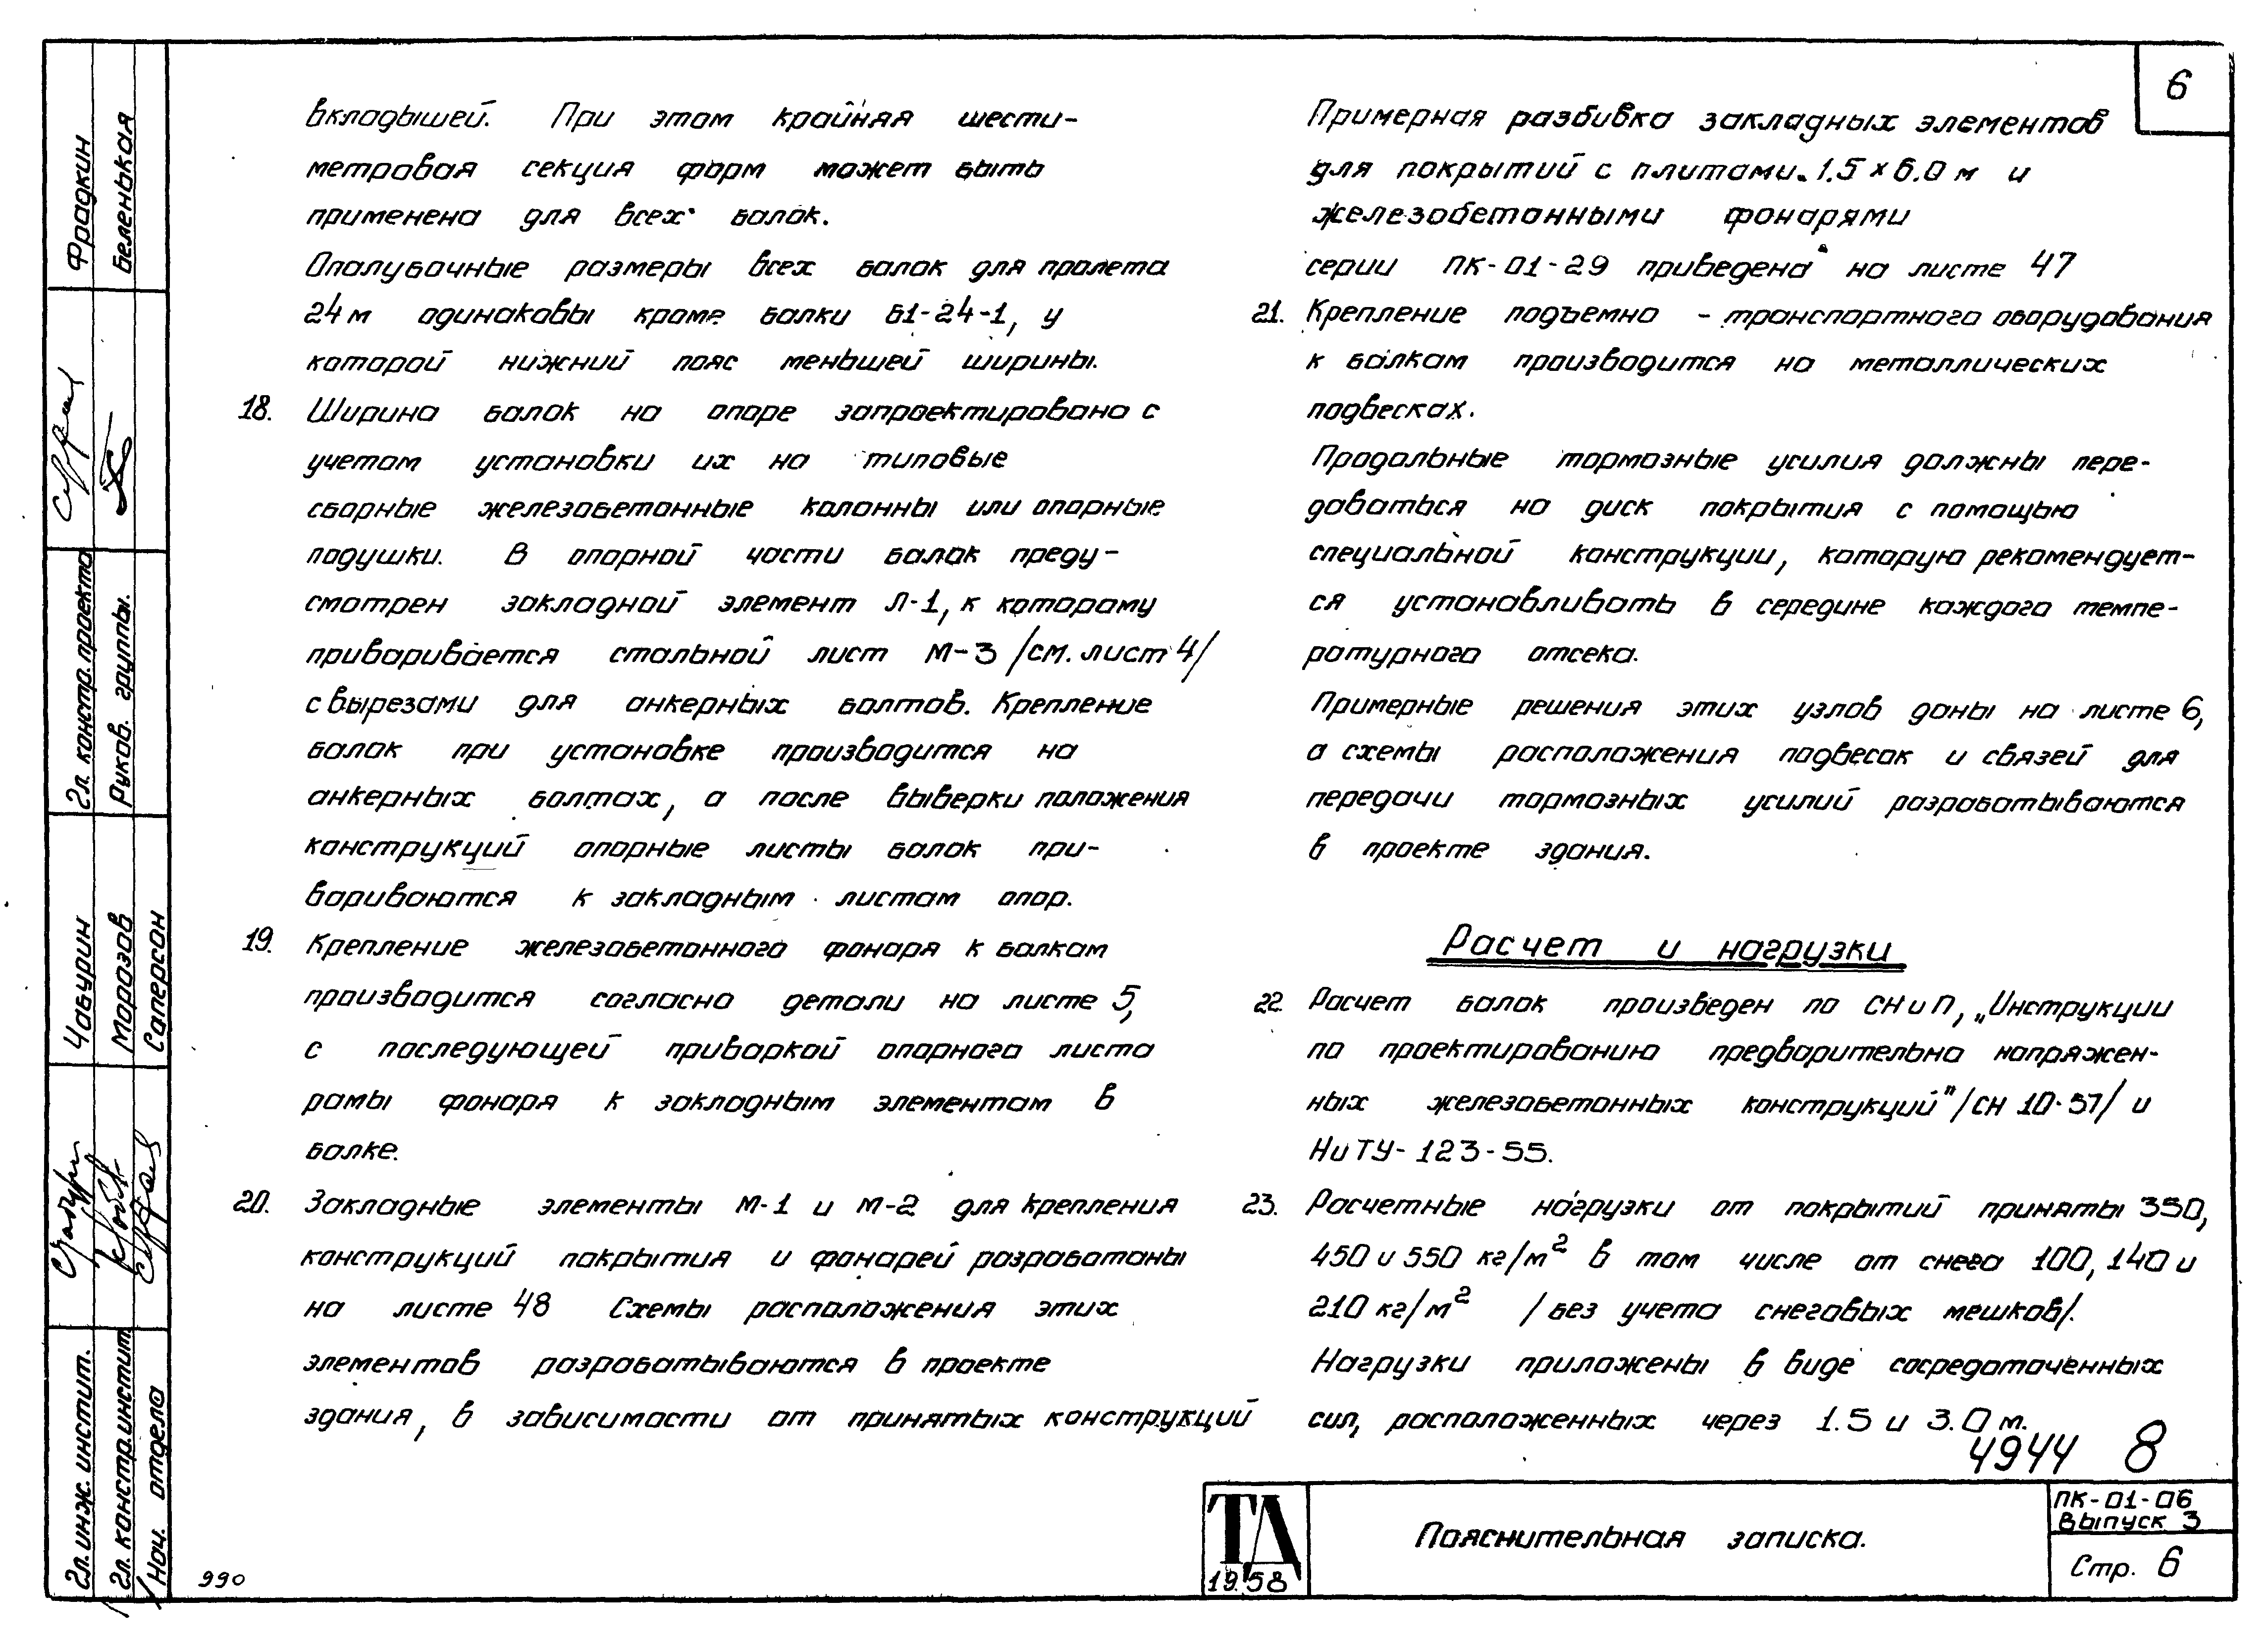 6
вкладышей. При этом крайняя шести-
метровая секция форм может быть
применена для всех балок.
Опалубочные размеры всех балок для пролета
24м одинаковы кроме балки Б1-24-1, у
которой нижний пояс меньшей ширины.
18. Ширина балок на опоре запроектирована с
учетом установки их на типовые
сборные железобетонные колонны или опорные
подушки. В опорной части балок преду-
смотрен закладной элемент Л-1, к которому
приваривается стальной лист М-3 /см. лист 4/
с вырезами для анкерных болтов. Крепление
балок при установке производится на
анкерных болтах, а после выверки положения
конструкций опорные листы балок при-
вариваются к закладным листам опор.
19. Крепление железобетонного фонаря к балкам
производится согласно детали на листе 5,
с последующей приваркой опорного листа
рамы фонаря к закладным элементам в
балке.
20. Закладные элементы М-1 и М-2 для крепления
конструкций покрытия и фонарей разработаны
на листе 48 Схемы расположения этих
элементов разрабатываются в проекте
здания, в зависимости от принятых конструкций
Примерная разбивка закладных элементов
для покрытий с плитами 1.5 х 6.0 м и
железобетонными фонарями
серии ПК-01-29 приведена на листе 47
21. Крепление подъемно - транспортного оборудования
к балкам производится на металлических
подвесках.
Продольные тормозные усилия должны пере-
даваться на диск покрытия с помощью
специальной конструкции, которую рекомендует-
ся устанавливать в середине каждого темпе-
ратурного отсека.
Примерные решения этих узлов даны на листе 6,
а схемы расположения подвесок и связей для
передачи тормозных усилий разрабатываются
в проекте здания.
Расчет и нагрузки
22. Расчет балок произведен по СНиП, „Инструкции
по проектированию предварительно напряжен-
ных железобетонных конструкций" /СН 10-57/ и
НиТУ-123-55.
23. Расчетные нагрузки от покрытий приняты 350,
450 и 550 кг/м² в том числе от снега 100, 140 и
210 кг/м² /без учета снеговых мешков/.
Нагрузки приложены в виде сосредоточенных
сил, расположенных через 1.5 и 3.0 м.
4944 8
ТД
1958
Пояснительная записка.
ПК-01-06
Выпуск 3
Стр. 6
990
Фрадкин
Беленькая
Гл. констр. проекта
Руков. группы.
Чабурин
Морозов
Саперсон
Гл. инж. инстит.
Гл. констр. инстит.
Нач. отдела